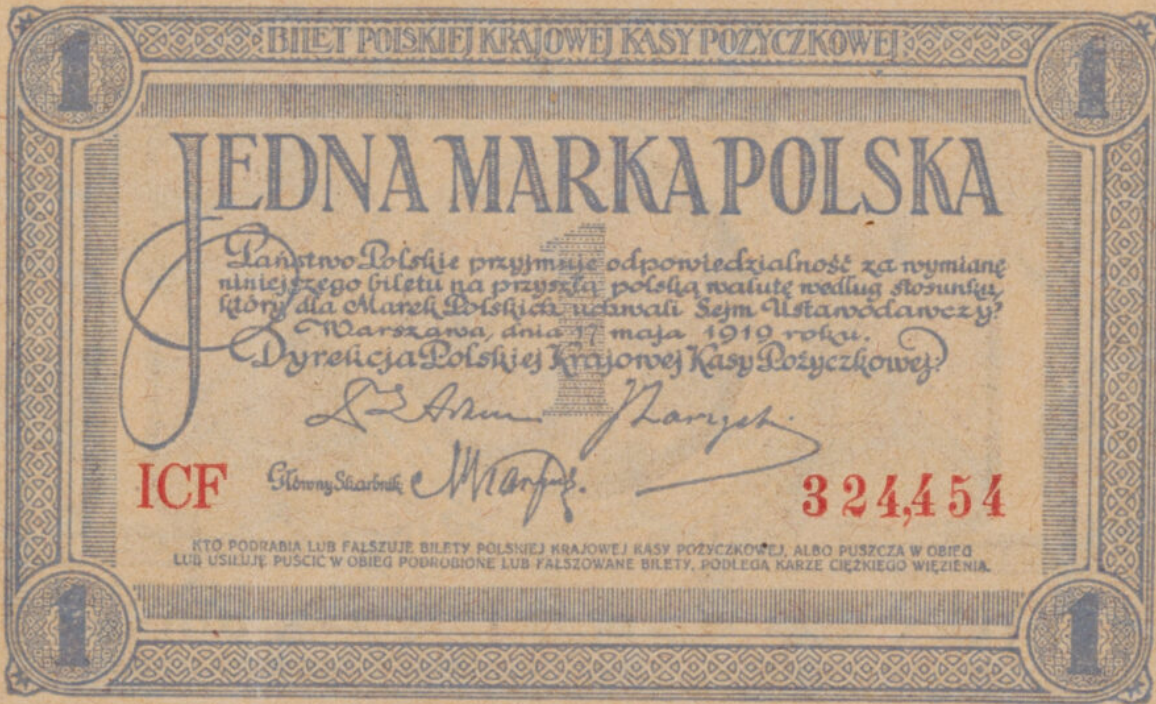 1 BILET POLSKIEJ KRAJOWEJ KASY POŻYCZKOWEJ 1
JEDNA MARKA POLSKA
1
Państwo Polskie przyjmuje odpowiedzialność za wymianę
niniejszego biletu na przyszłą polską walutę według stosunku,
który dla Marek Polskich uchwali Sejm Ustawodawczy.
Warszawa, dnia 17 maja 1919 roku.
Dyrekcja Polskiej Krajowej Kasy Pożyczkowej
ICF Główny Skarbnik 324,454
KTO PODRABIA LUB FAŁSZUJE BILETY POLSKIEJ KRAJOWEJ KASY POŻYCZKOWEJ, ALBO PUSZCZA W OBIEG
LUB USIŁUJE PUŚCIĆ W OBIEG PODROBIONE LUB FAŁSZOWANE BILETY, PODLEGA KARZE CIĘŻKIEGO WIĘZIENIA.
1 1